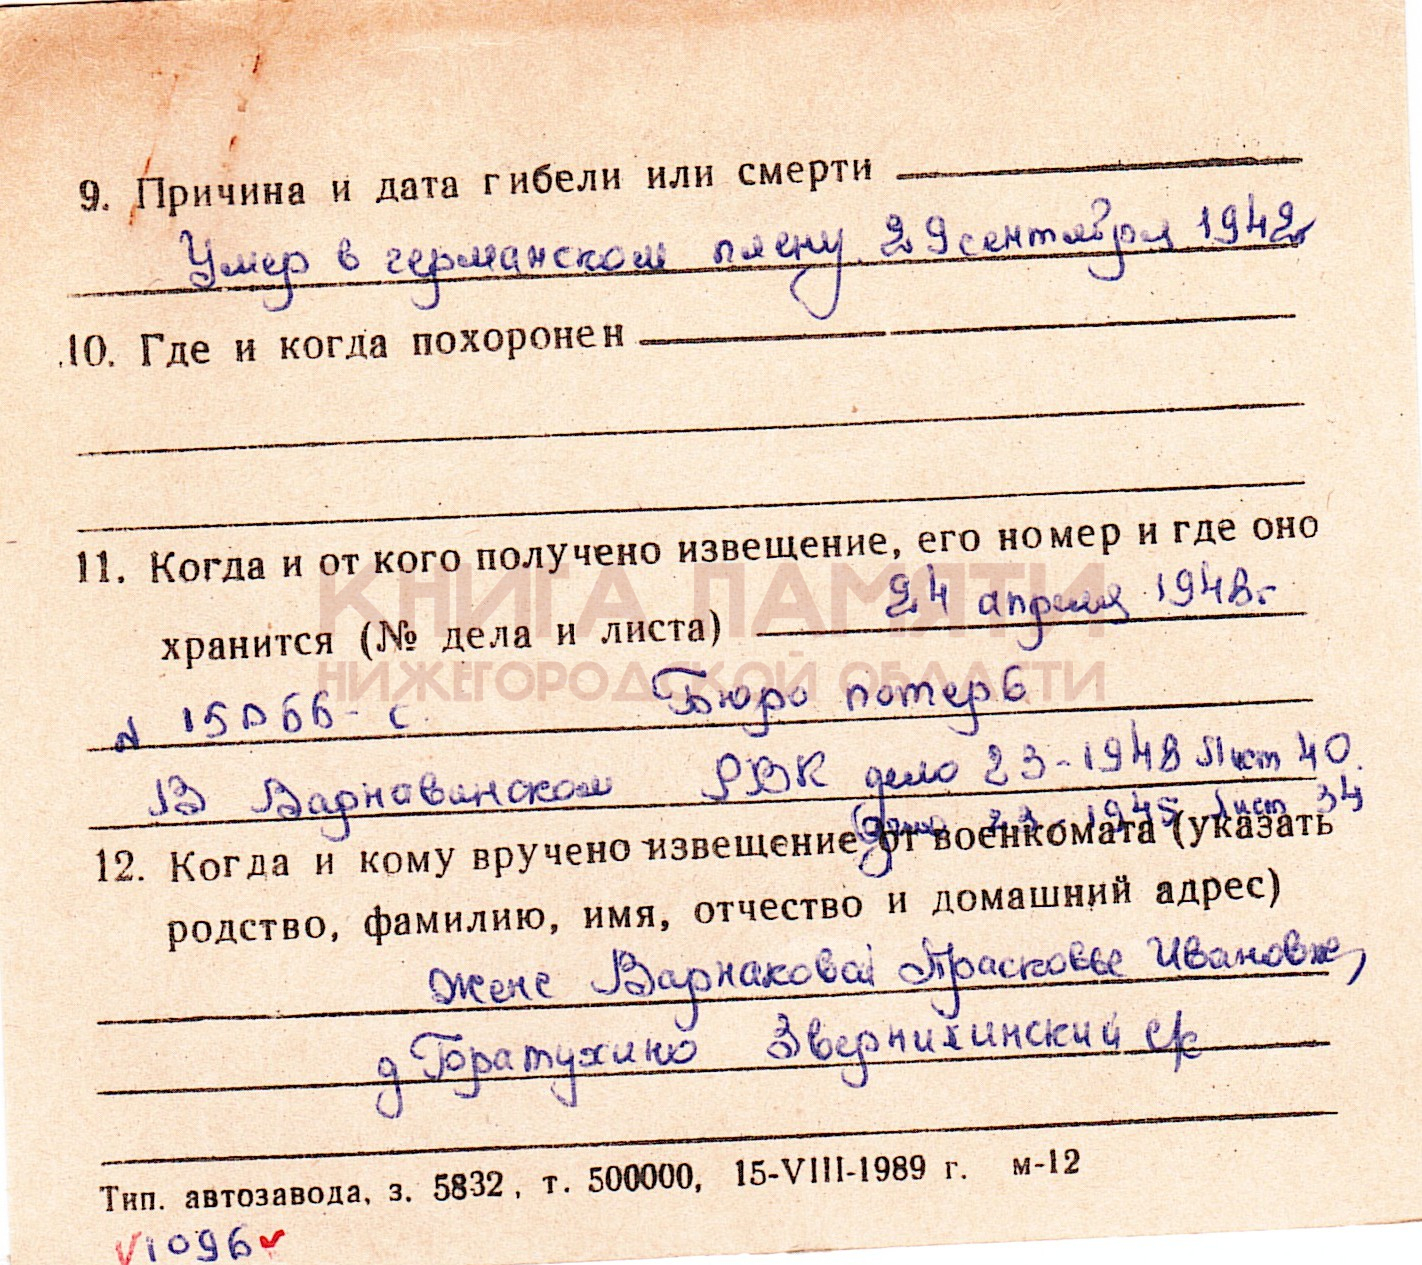 9. Причина и дата гибели или смерти
Умер в германском плену 29 сентября 1942г
10. Где и когда похоронен
11. Когда и от кого получено извещение, его номер и где оно
КНИГА ПАМЯТИ
24 апреля 1948г
хранится (№ дела и листа)
НИЖЕГОРОДСКОЙ ОБЛАСТИ
N 15066-с. Бюро потерь
В Варнавинском РВК дело 23-1948 Лист 40.
(дело 23-1945 Лист 34
12. Когда и кому вручено извещение от военкомата (указать
родство, фамилию, имя, отчество и домашний адрес)
Жене Варнаковой Прасковье Ивановне,
д Горатухино Звернихинский с/с
Тип. автозавода, з. 5832, т. 500000, 15-VIII-1989 г. м-12
1096